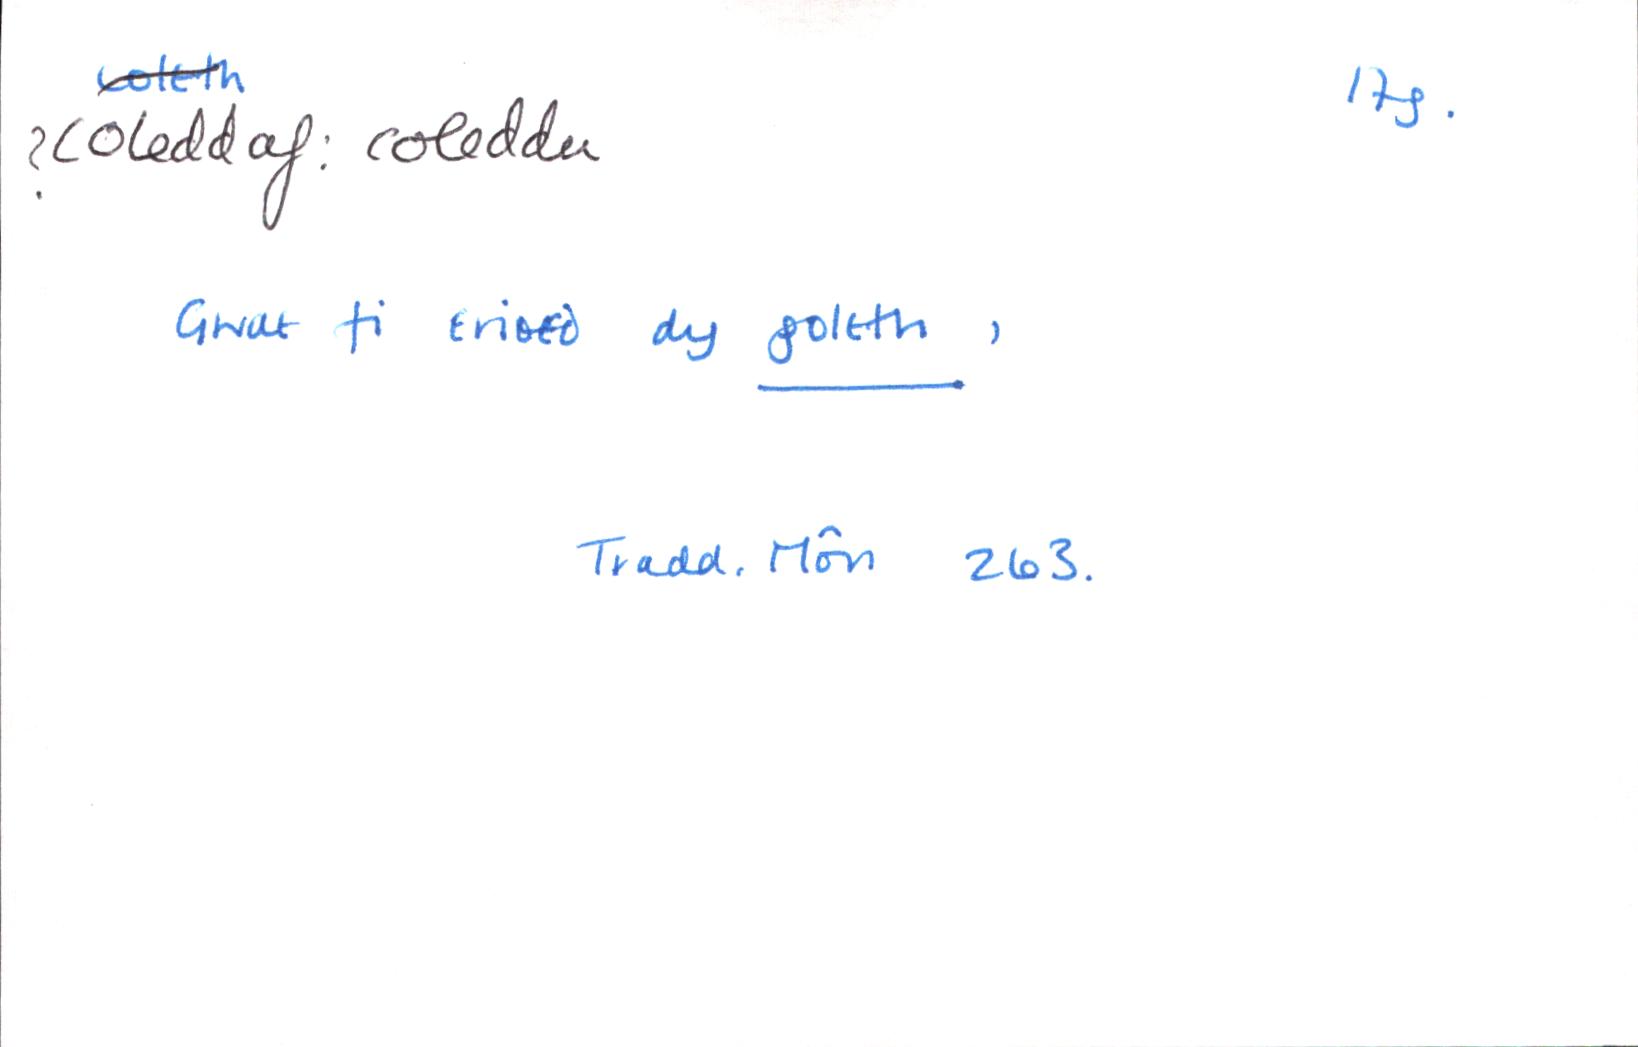 coleth
17g.
?coleddaf: coleddu
Gwae fi erioed dy goleth,
Tradd. Môn 263.